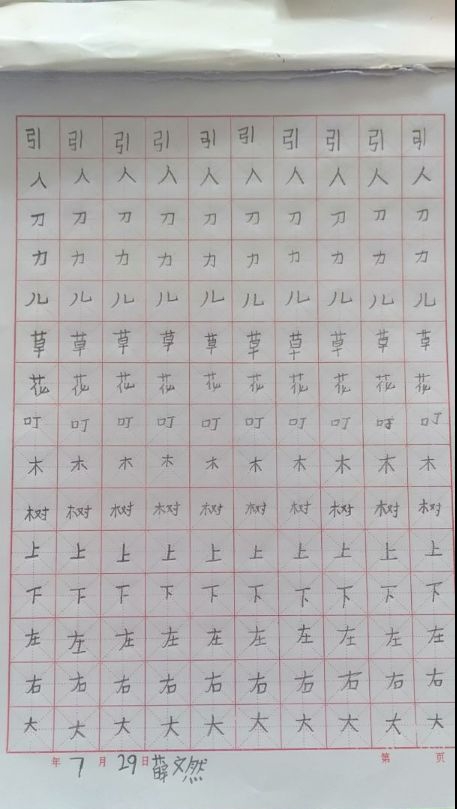 引引引引引引引引引引
人人人人人人人人人人
刀刀刀刀刀刀刀刀刀刀
力力力力力力力力力力
儿儿儿儿儿儿儿儿儿儿
草草草草草草草草草草
花花花花花花花花花花
叮叮叮叮叮叮叮叮叮叮
木木木木木木木木木木
树树树树树树树树树树
上上上上上上上上上上
下下下下下下下下下下
左左左左左左左左左左
右右右右右右右右右右
大大大大大大大大大大
年 7 月 29 日 薛文然 第 页